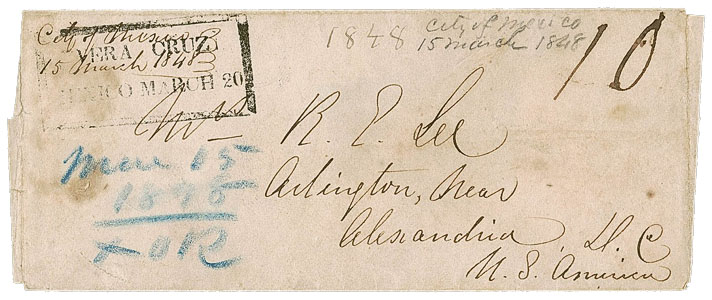 City of Mexico
15 March 1848
VERA CRUZ
MEXICO MARCH 20
1848
City of Mexico
15 March 1848
10
Mrs R. E. Lee
Arlington, Near
Alexandria, D. C
U. S. America
Mar 15
1848